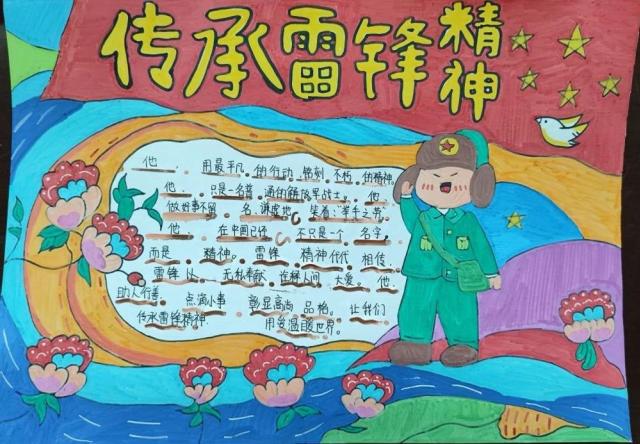 传承雷锋精神
他，用最平凡的行动，铭刻不朽的精神。
他，只是一名普通的解放军战士。他
做好事不留名，谦虚地笑着："举手之劳。
他，在中国已经不只是一个名字，
而是精神。雷锋精神代代相传，
雷锋以无私奉献，诠释人间大爱。他
助人行善，点滴小事彰显高尚品格。让我们
传承雷锋精神，用爱温暖世界。